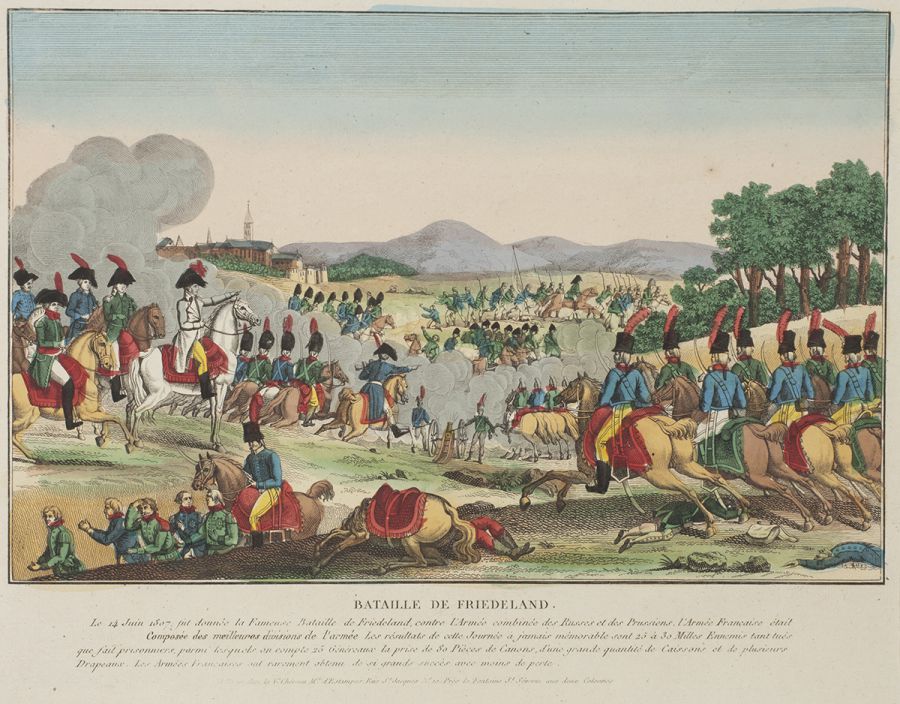 BATAILLE DE FRIEDELAND.
Le 14 Juin 1807, fut donnée la Fameuse Bataille de Friedeland, contre l'Armée combinée des Russes et des Prussiens, l'Armée Française était
Composée des meilleures divisions de l'armée Les résultats de cette Journée à jamais mémorable sont 25 à 30 Milles Ennemis tant tués
que fait prisonniers, parmi lesquels on compte 25 Généreaux la prise de 80 Pièces de Canons, d'une grande quantité de Caissons et de plusieurs
Drapeaux. Les Armées Françaises ont rarement obtenu de si grands succès avec moins de perte.
A Paris chez la Ve. Chéreau Md. d'Estampes, Rue St. Jacques No. 10 Près la Fontaine St. Séverin aux deux Colonnes